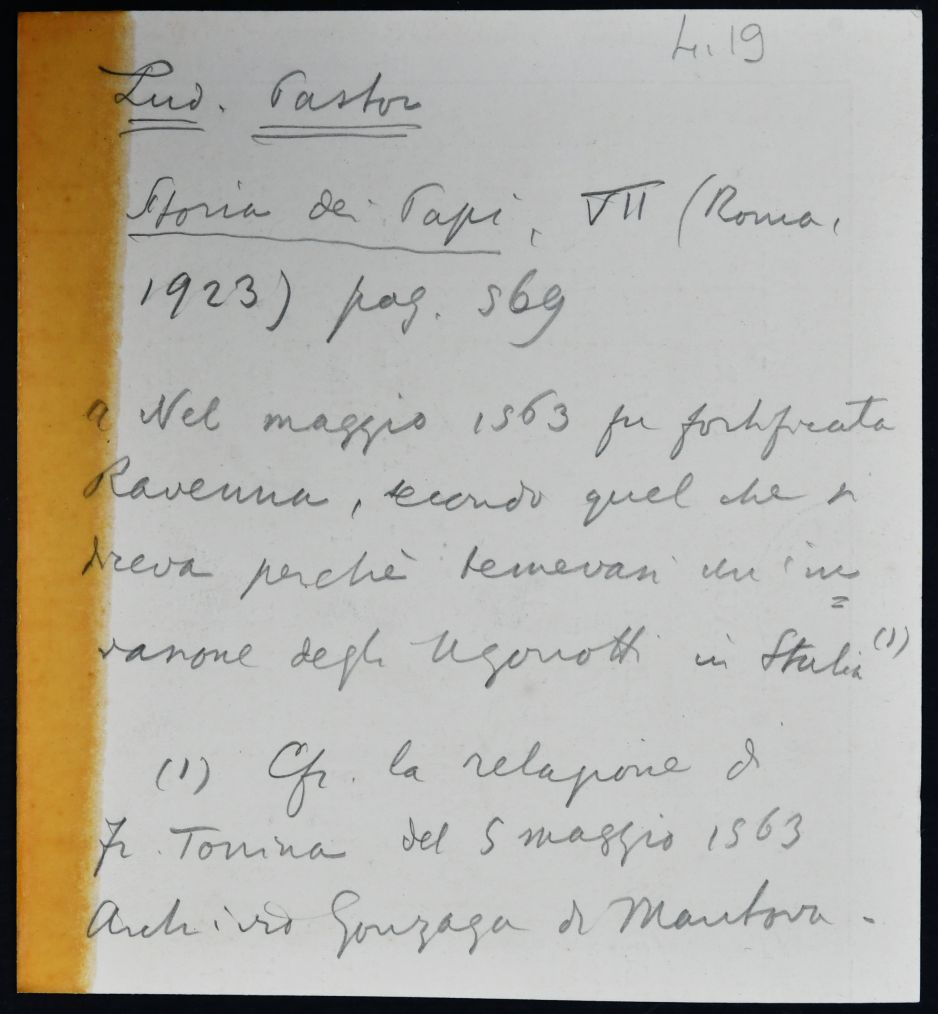 Lud. Pastor
Storia dei Papi, VII (Roma,
1923) pag. 569
Nel maggio 1563 fu fortificata
Ravenna, secondo quel che si
diceva perchè temevasi un'in=
vasione degli Ugonotti in Italia (1)
(1) Cfr. la relazione di
Fr. Tonina del 5 maggio 1563
Archivio Gonzaga di Mantova.